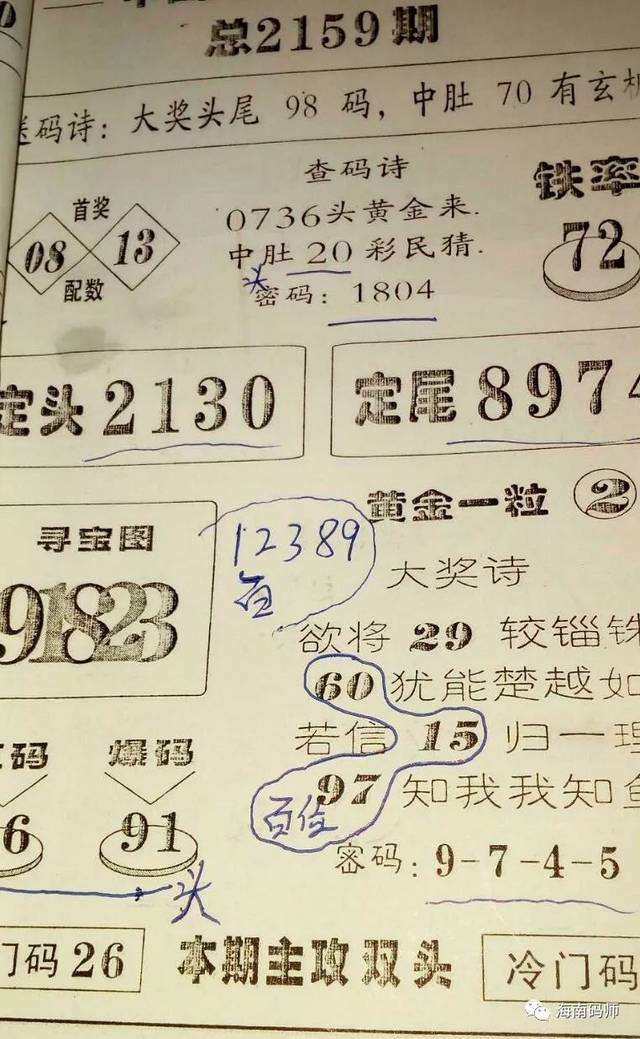 总2159期
送码诗：大奖头尾 98 码，中肚 70 有玄机
查码诗
铁率
首奖
0736头黄金来.
08 13
72
中肚 20 彩民猜.
配数
头
密码：1804
定头 2130
定尾 8974
黄金一粒 2
寻宝图
12389
百
大奖诗
91823
欲将 29 较锱铢
60 犹能楚越如
若信 15 归一理
码 爆码
97 知我我知鱼
百位
6 91
密码：9-7-4-5
头
门码 26
本期主攻双头
冷门码
海南码师